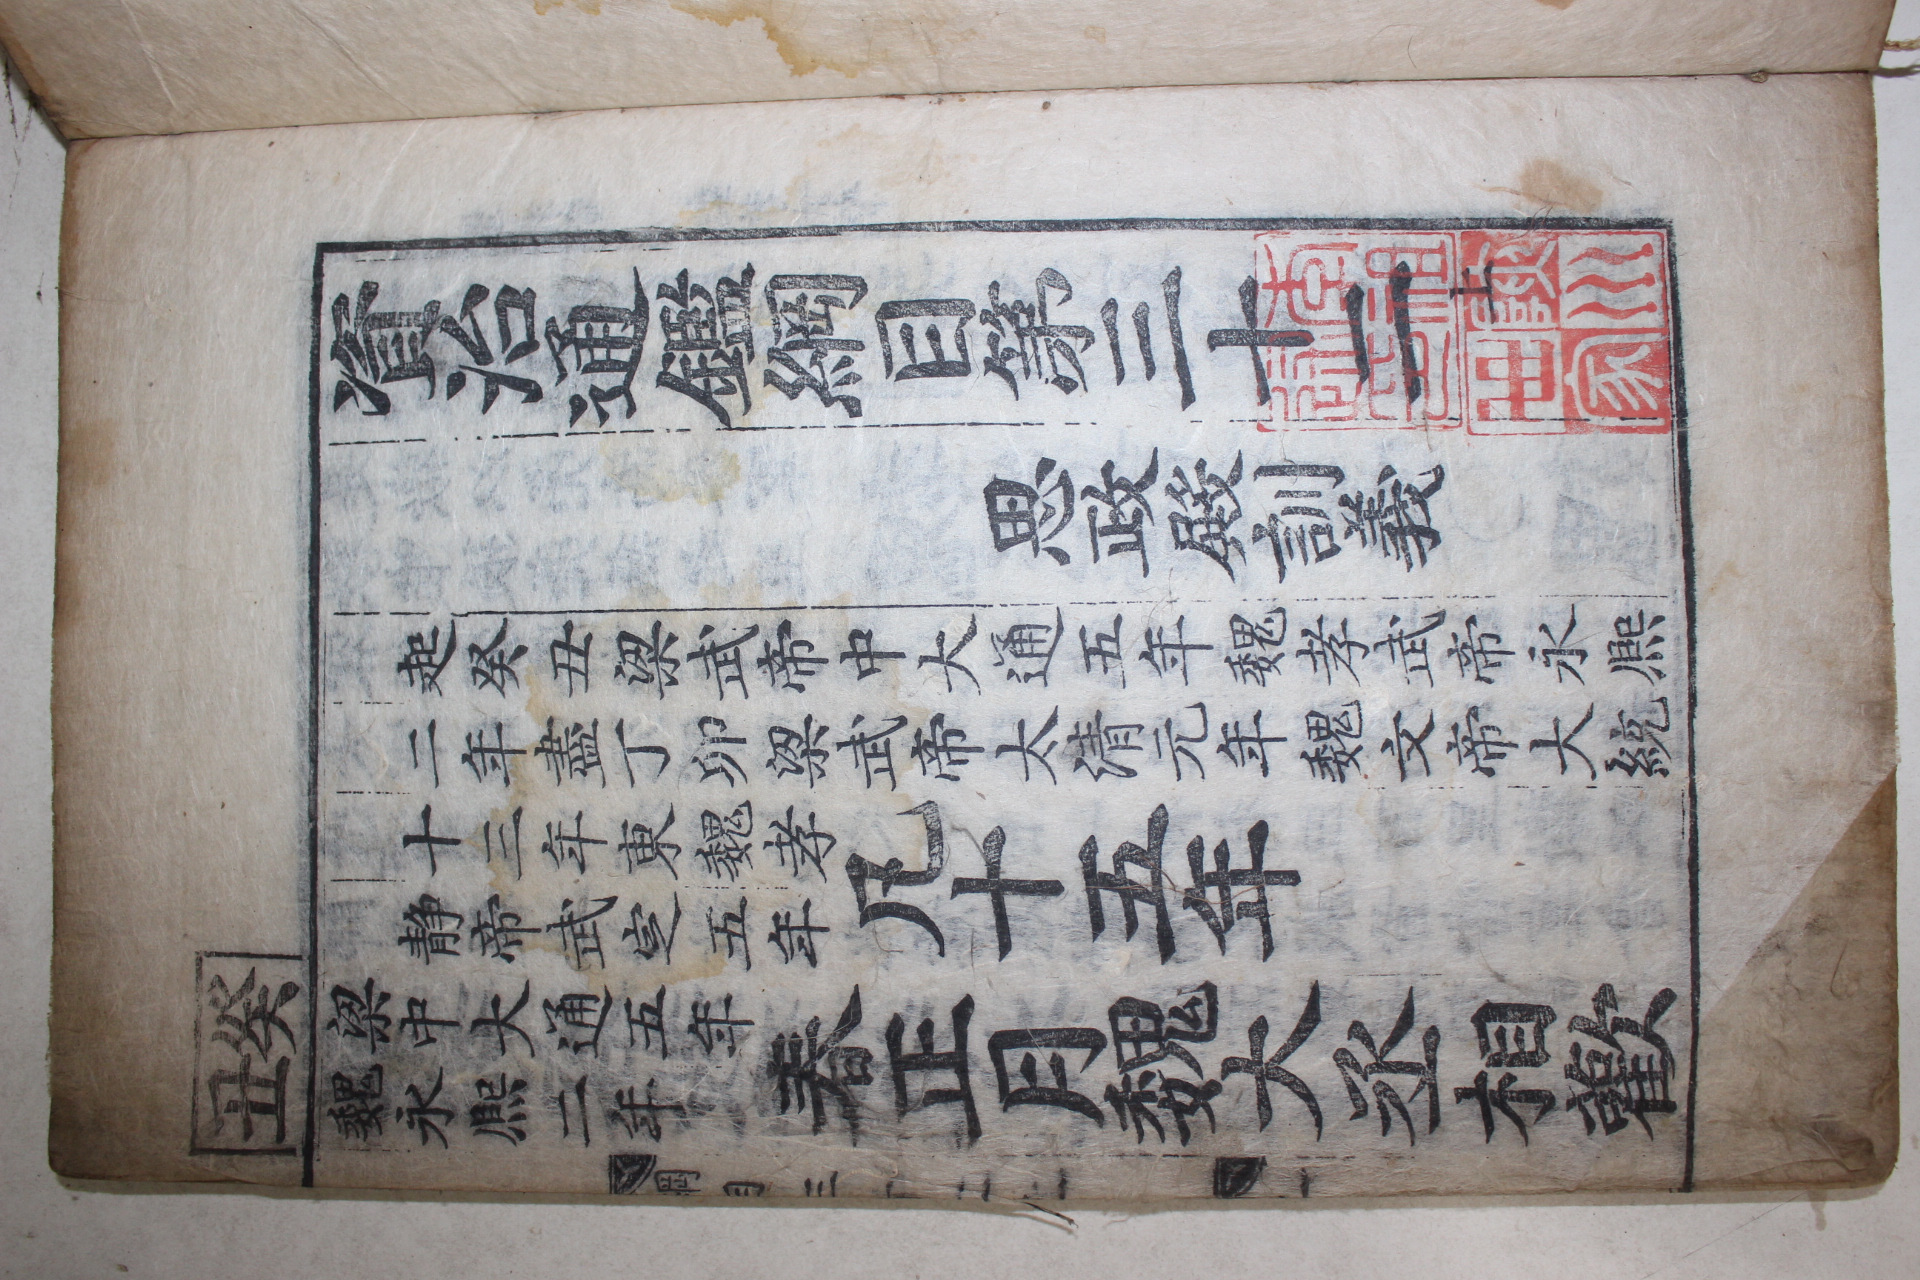 資治通鑑綱目第三十二上
思政殿訓義
起癸丑梁武帝中大通五年魏孝武帝永熙
二年盡丁卯梁武帝太清元年魏文帝大統
十三年東魏孝
靜帝武定五年
凡十五年
癸丑
梁中大通五年
魏永熙二年
春正月魏大丞相歡